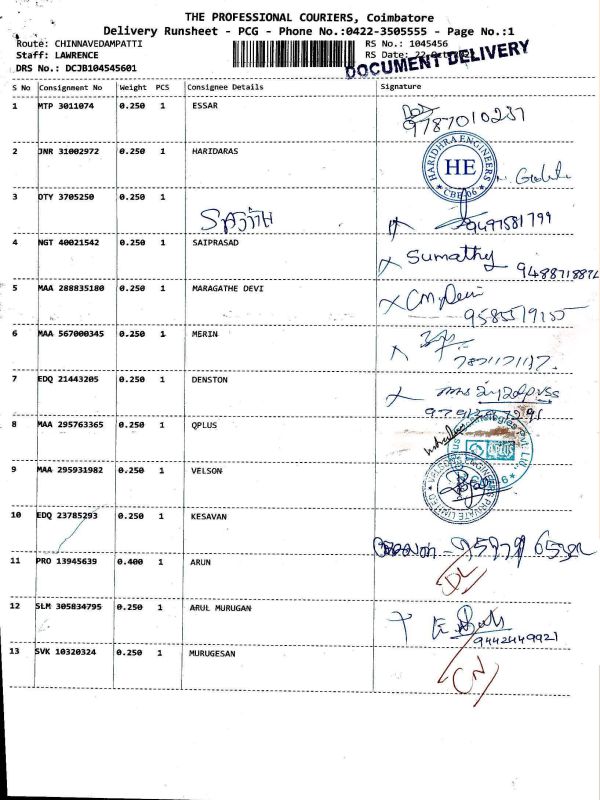 THE PROFESSIONAL COURIERS, Coimbatore
Delivery Runsheet - PCG - Phone No.:0422-3505555 - Page No.:1
Route: CHINNAVEDAMPATTI RS No.: 1045456
Staff: LAWRENCE RS Date: 22-Oct
DRS No.: DCJB104545601 DOCUMENT DELIVERY
S No Consignment No Weight PCS Consignee Details Signature
1 MTP 3011074 0.250 1 ESSAR
9787010237
2 JNR 31002972 0.250 1 HARIDARAS
HARIDHRA ENGINEERS
HE
CBE-06
3 OTY 3705250 0.250 1
9497581799
4 NGT 40021542 0.250 1 SAIPRASAD Sumathy
5 MAA 288835180 0.250 1 MARAGATHE DEVI
6 MAA 567000345 0.250 1 MERIN
7 EDQ 21443205 0.250 1 DENSTON
8 MAA 295763365 0.250 1 QPLUS
9 MAA 295931982 0.250 1 VELSON
10 EDQ 23785293 0.250 1 KESAVAN
11 PRO 13945639 0.400 1 ARUN DL
12 SLM 305834795 0.250 1 ARUL MURUGAN
9442449921
13 SVK 10320324 0.250 1 MURUGESAN CN